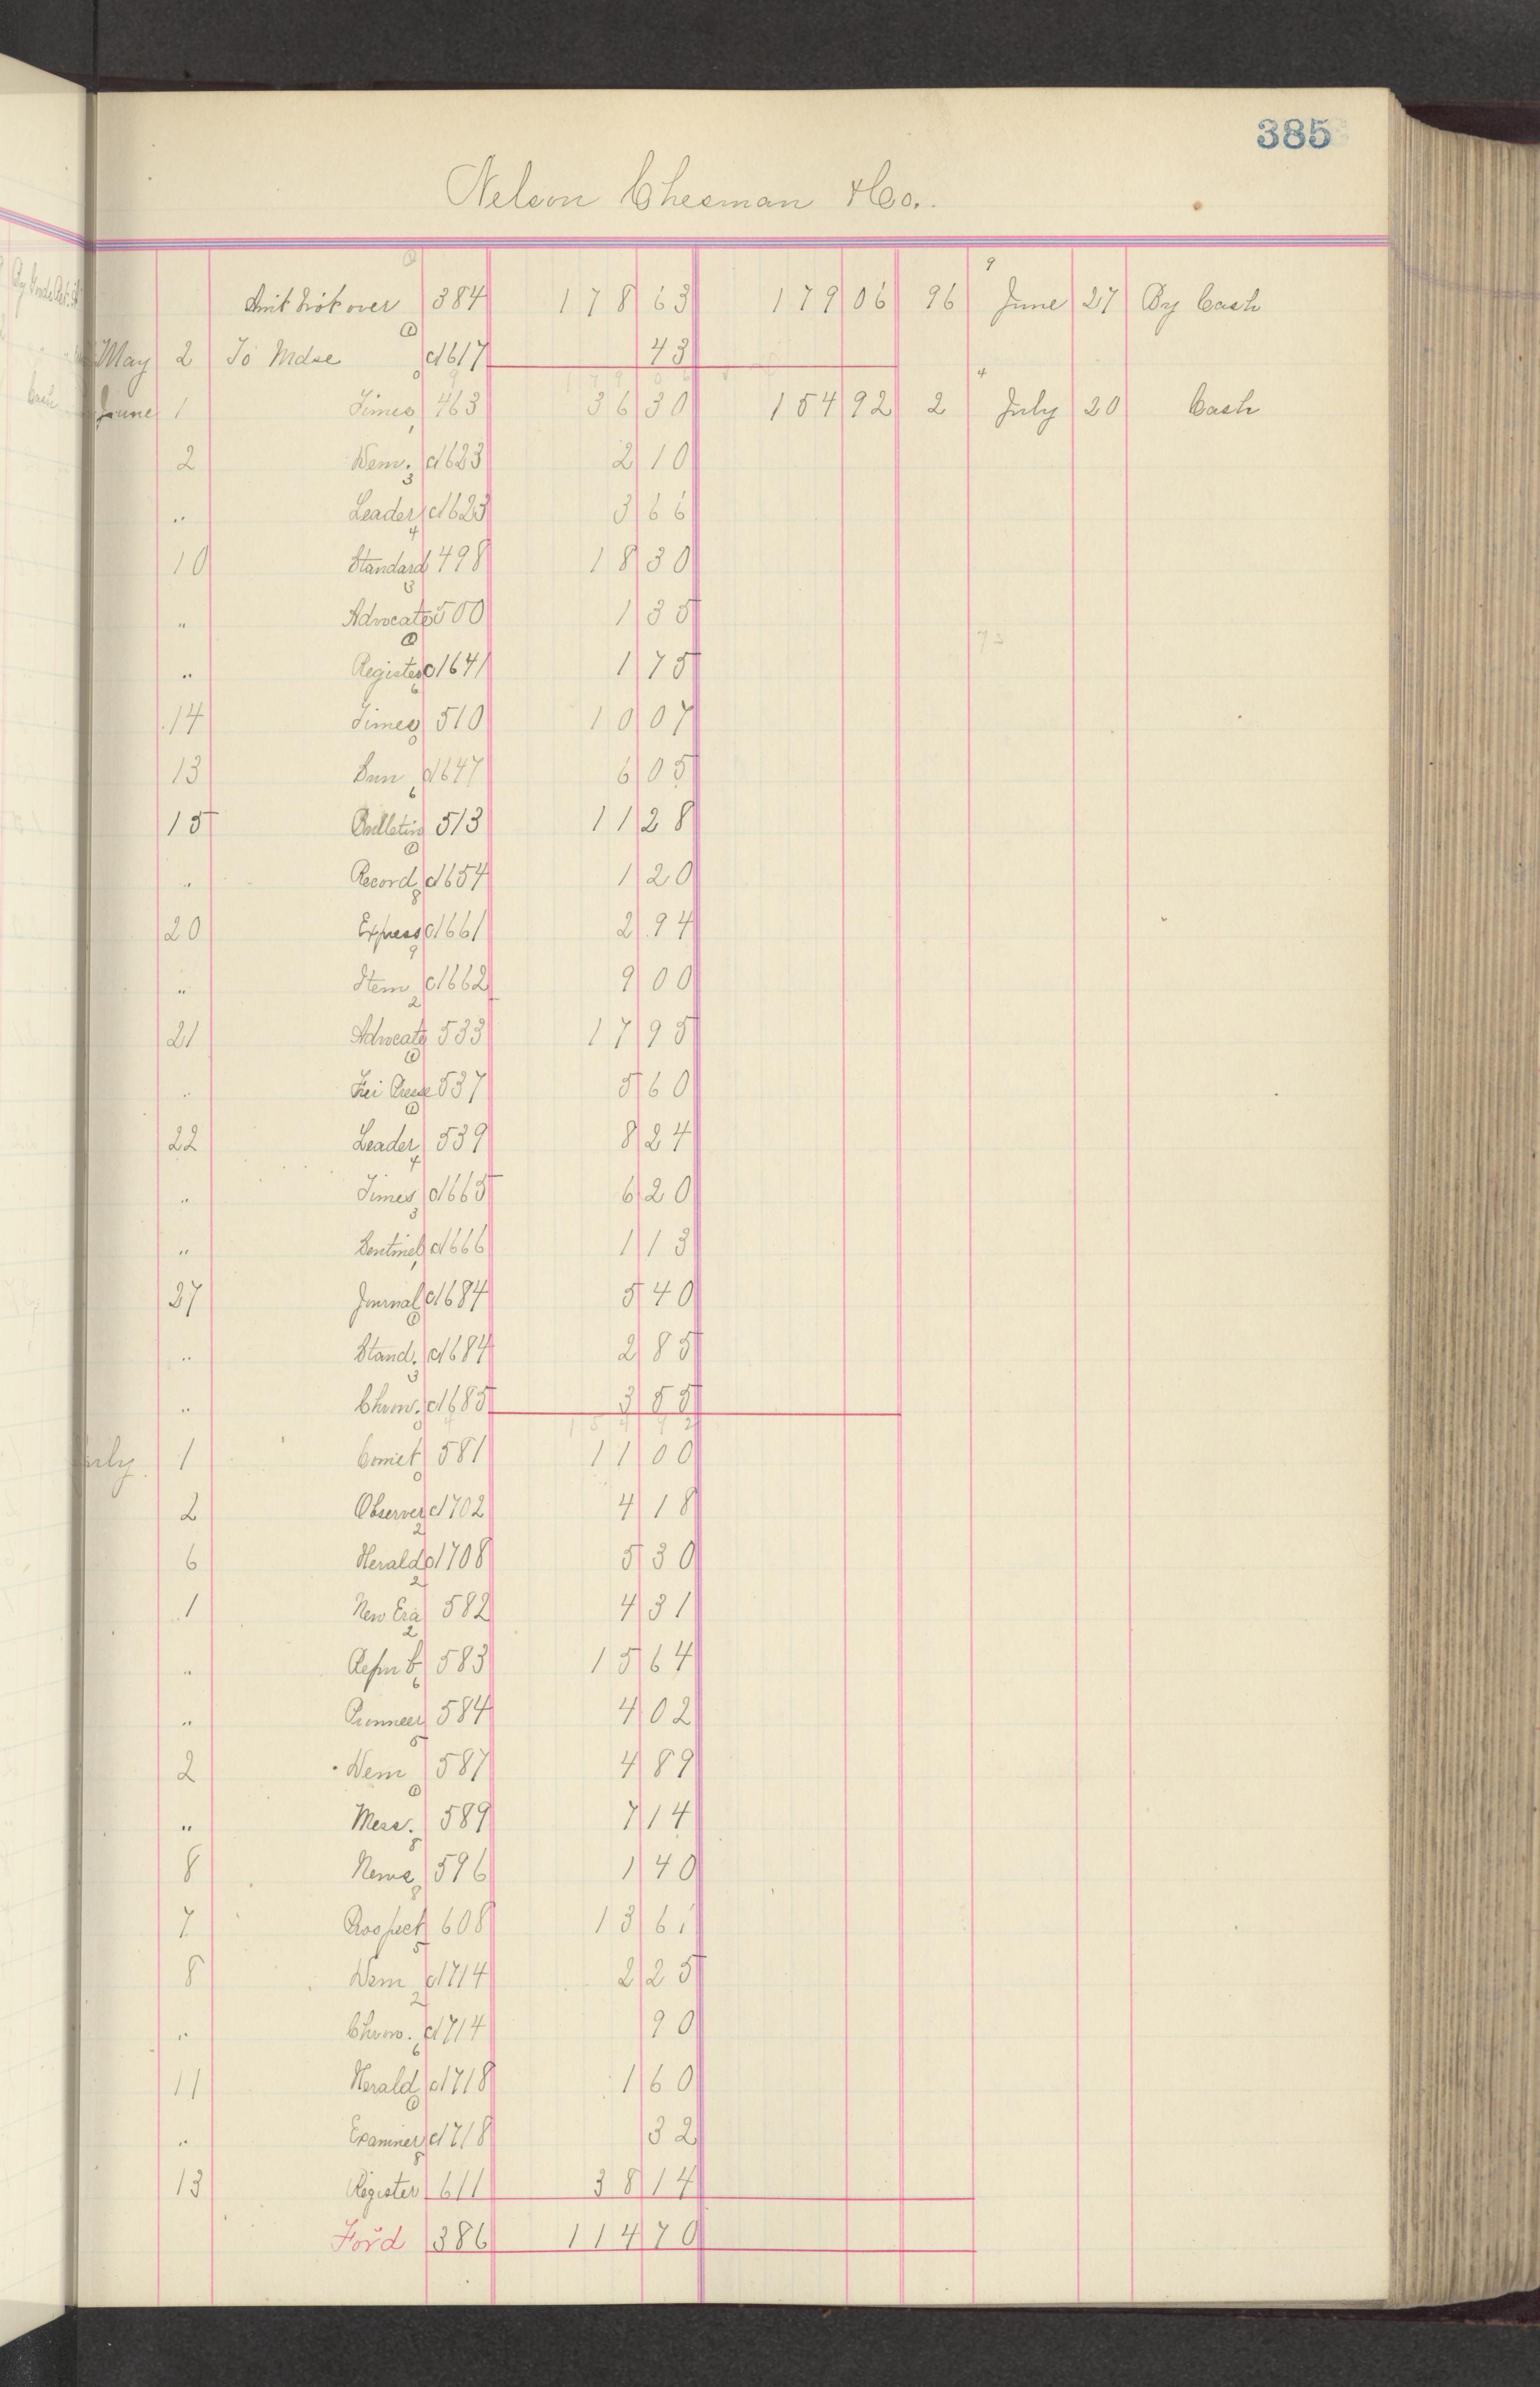 385
Nelson Chesman & Co.
Amt brôt over 384 178 63 179 06 96 June 27 By Cash
May 2 To Mdse c1617 43
June 1 Times 463 36 30 154 92 2 July 20 Cash
2 Dem. c1623 2 10
" Leader c1623 3 66
10 Standard 498 18 30
" Advocate 500 1 35
" Register c1641 1 75
14 Times 510 10 07
13 Sun c1647 6 05
15 Bulletin 513 11 28
" Record c1654 1 20
20 Express c1661 2 94
" Item c1662 9 00
21 Advocate 533 17 95
" Frei Presse 537 5 60
22 Leader 539 8 24
" Times c1665 6 20
" Sentinel c1666 1 13
27 Journal c1684 5 40
" Stand. c1684 2 85
" Chron. c1685 3 55
July 1 Comet 581 11 00
2 Observer c1702 4 18
6 Herald c1708 5 30
1 New Era 582 4 31
" 583 15 64
" Pionneer 584 4 02
2 Dem 587 4 89
" Mess. 589 7 14
8 News 596 1 40
7 Prospect 608 13 61
8 Dem c1714 2 25
" Chron. c1714 90
11 Herald c1718 1 60
" Examiner c1718 32
13 Register 611 38 14
For'd 386 114 70